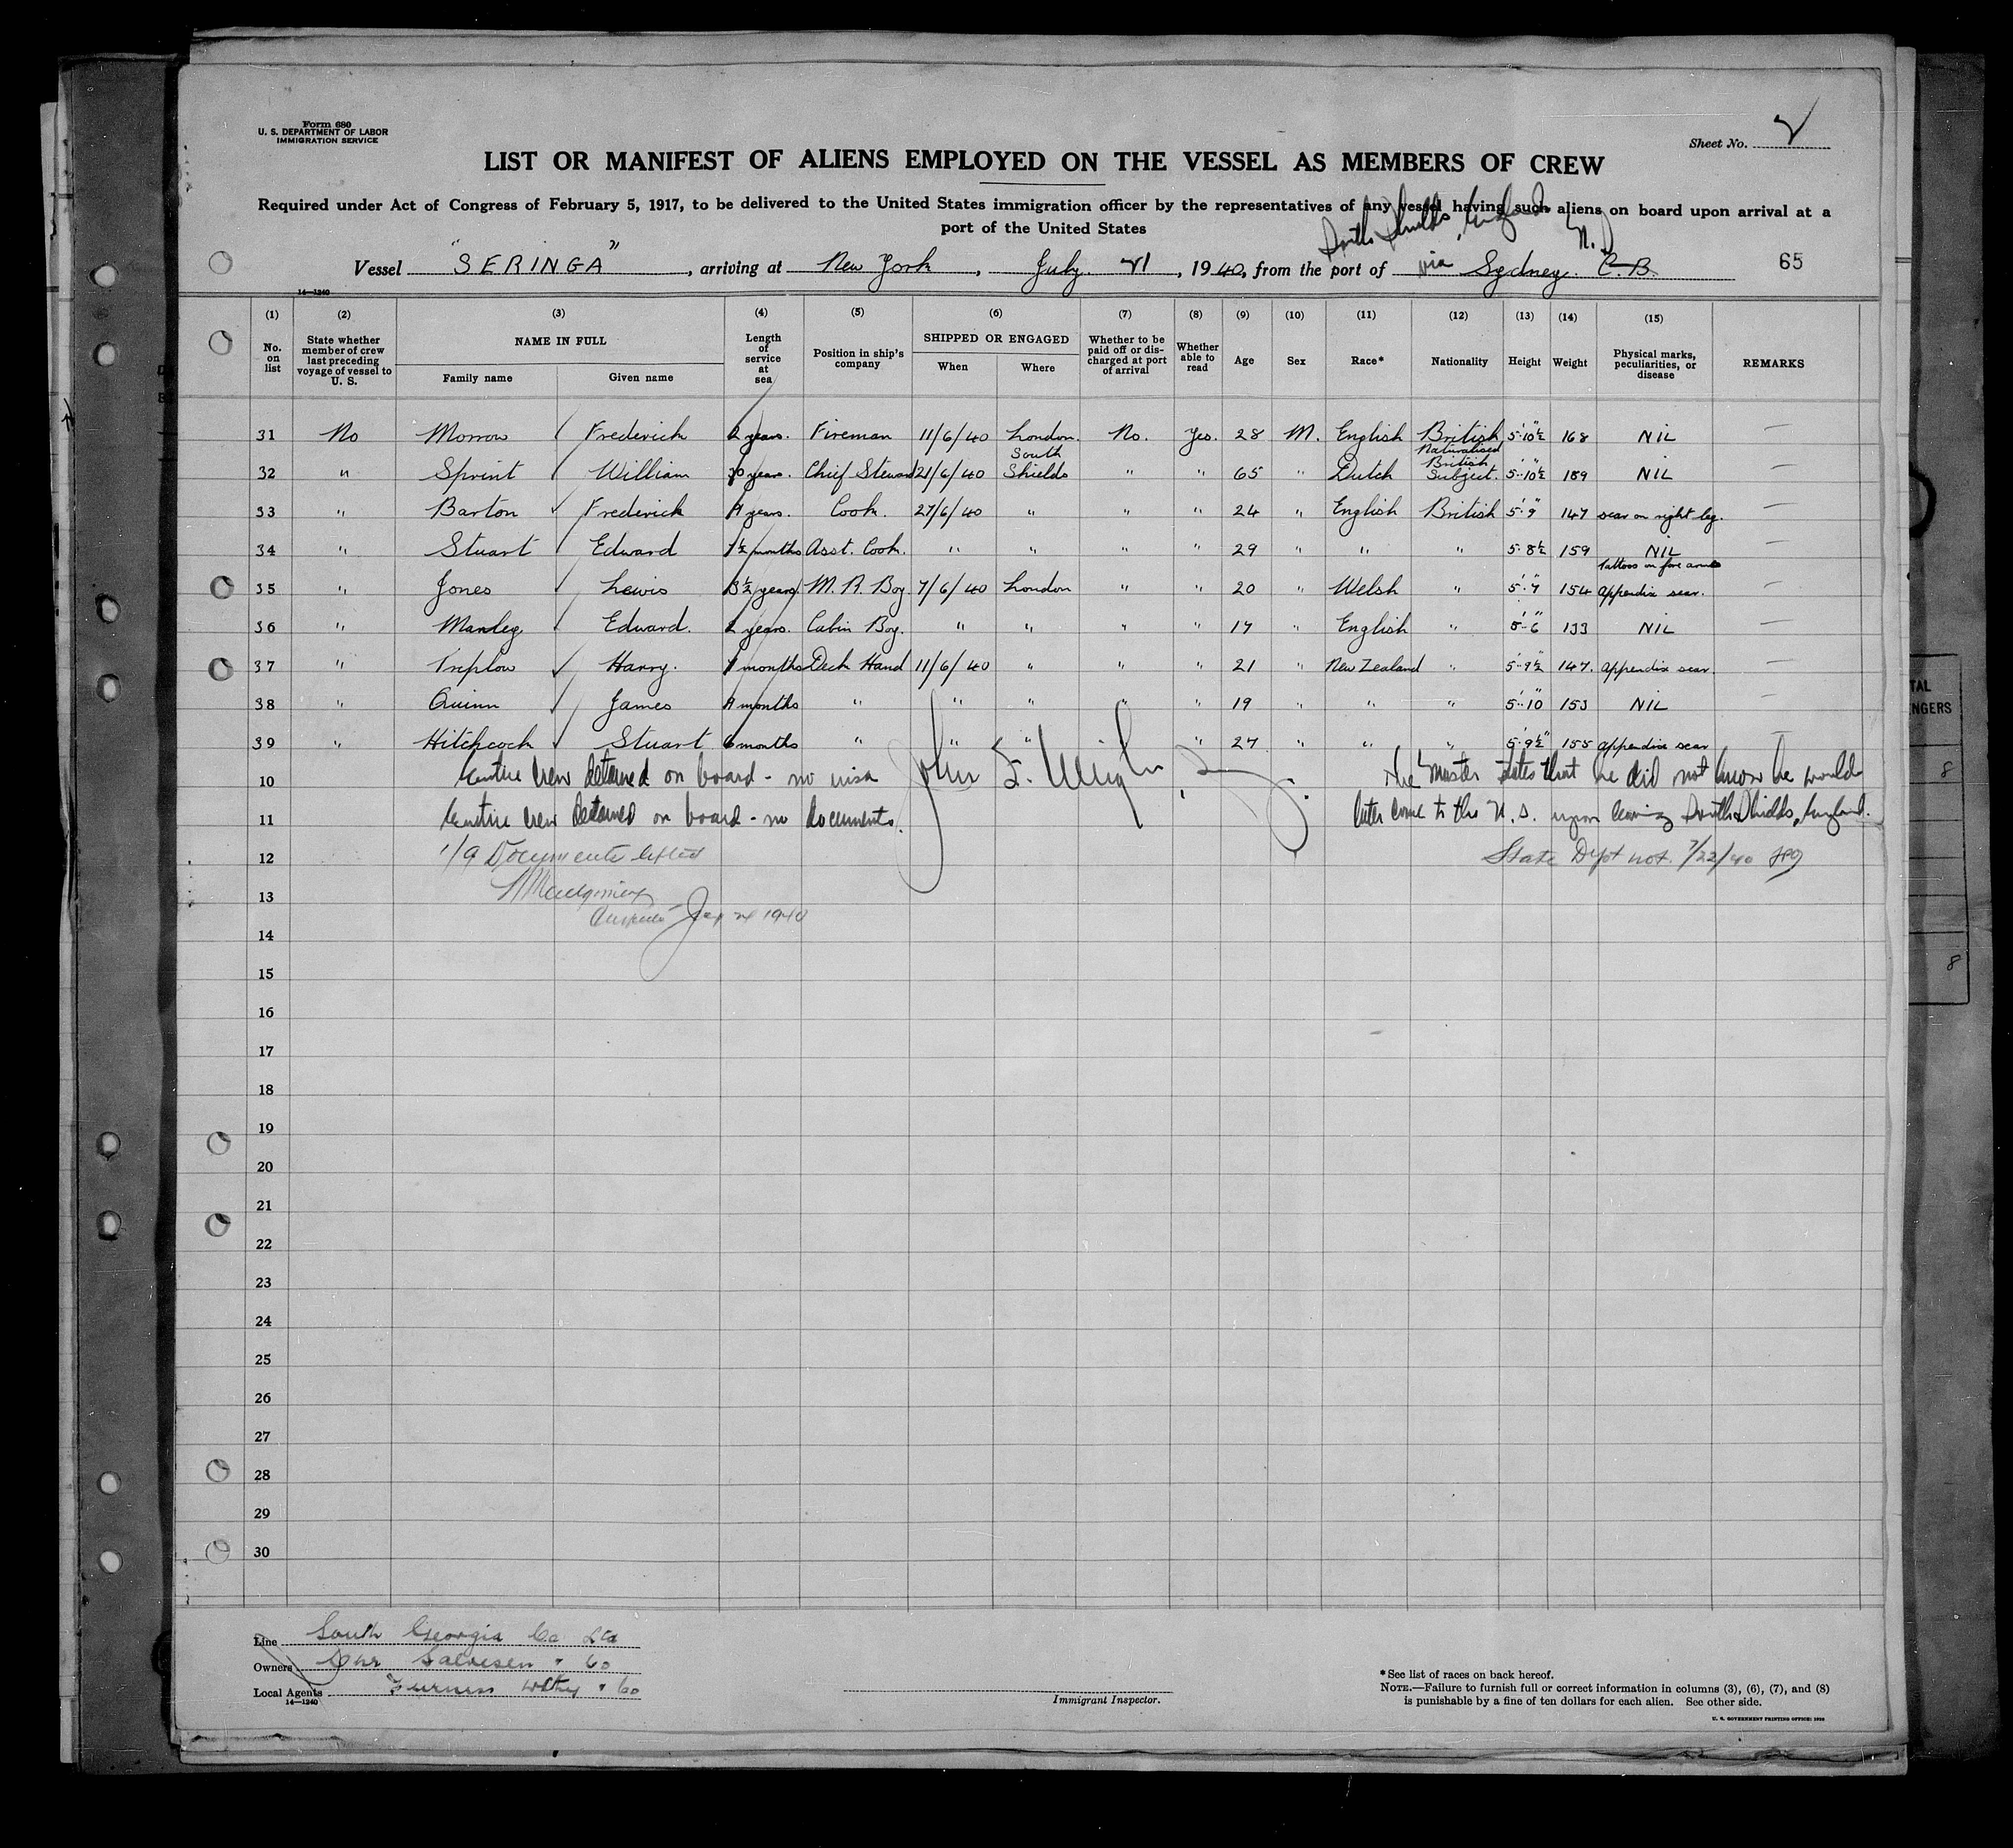 Form 680
U. S. DEPARTMENT OF LABOR
IMMIGRATION SERVICE
Sheet No. 2
LIST OR MANIFEST OF ALIENS EMPLOYED ON THE VESSEL AS MEMBERS OF CREW
Required under Act of Congress of February 5, 1917, to be delivered to the United States immigration officer by the representatives of any vessel having such aliens on board upon arrival at a
port of the United States
South Shields, England
Vessel "SERINGA", arriving at New York, July 21, 1940, from the port of via Sydney C.B. N.S. 65
14—1240
(1) (2) (3) (4) (5) (6) (7) (8) (9) (10) (11) (12) (13) (14) (15)
No. on list
State whether member of crew last preceding voyage of vessel to U. S.
NAME IN FULL
Family name Given name
Length of service at sea
Position in ship's company
SHIPPED OR ENGAGED
When Where
Whether to be paid off or discharged at port of arrival
Whether able to read
Age Sex Race* Nationality Height Weight
Physical marks, peculiarities, or disease
REMARKS
31 No Morrow Frederick 2 years. Fireman 11/6/40 London. No. Yes. 28 M. English British 5'-10½" 168 NIL —
32 " Sprint William 30 years. Chief Steward 21/6/40 South Shields " " 65 " Dutch Naturalised British Subject. 5'-10½" 189 NIL —
33 " Barton Frederick 4 years. Cook. 27/6/40 " " " 24 " English British 5'-9" 147 scar on right leg. —
34 " Stuart Edward 1½ months Asst. Cook. " " " " 29 " " " 5-8½ 159 NIL —
35 " Jones Lewis 3½ years M. R. Boy 7/6/40 London " " 20 " Welsh " 5'-7" 154 Tattoos on fore arms appendix scar. —
36 " Manley Edward. 2 years. Cabin Boy. " " " " 17 " English " 5'-6" 133 NIL —
37 " Treplow Harry. 7 months Deck Hand 11/6/40 " " " 21 " New Zealand " 5'-9½" 147. appendix scar. —
38 " Quinn James 9 months " " " " " 19 " " " 5'-10" 153 NIL —
39 " Hitchcock Stuart 6 months " " " " 27 " " " 5'-9½" 155 appendix scar —
10 Entire crew detained on board - no visa The master states that he did not know he would
11 Entire crew detained on board - no documents. later come to the U. S. upon leaving South Shields, England.
12 1/9 Documents lifted State Dept not. 7/22/40
13
1940
14
15
16
17
18
19
20
21
22
23
24
25
26
27
28
29
30
Line South Georgia Co Ltd
Owners Chr Salvesen & Co
Local Agents Furness Withy & Co
14—1240
Immigrant Inspector.
*See list of races on back hereof.
NOTE.—Failure to furnish full or correct information in columns (3), (6), (7), and (8)
is punishable by a fine of ten dollars for each alien. See other side.
U. S. GOVERNMENT PRINTING OFFICE: 1939
TAL
NGERS
8
8